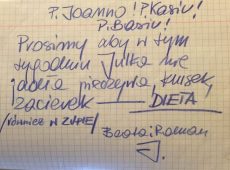 P. Joanno! P. Kasiu!
P. Basiu!
Prosimy aby w tym
tygodniu Julka nie
jadła pieczywa, klusek,
zacierek — DIETA,
/również w ZUPIE/
Beata i Roman
J.